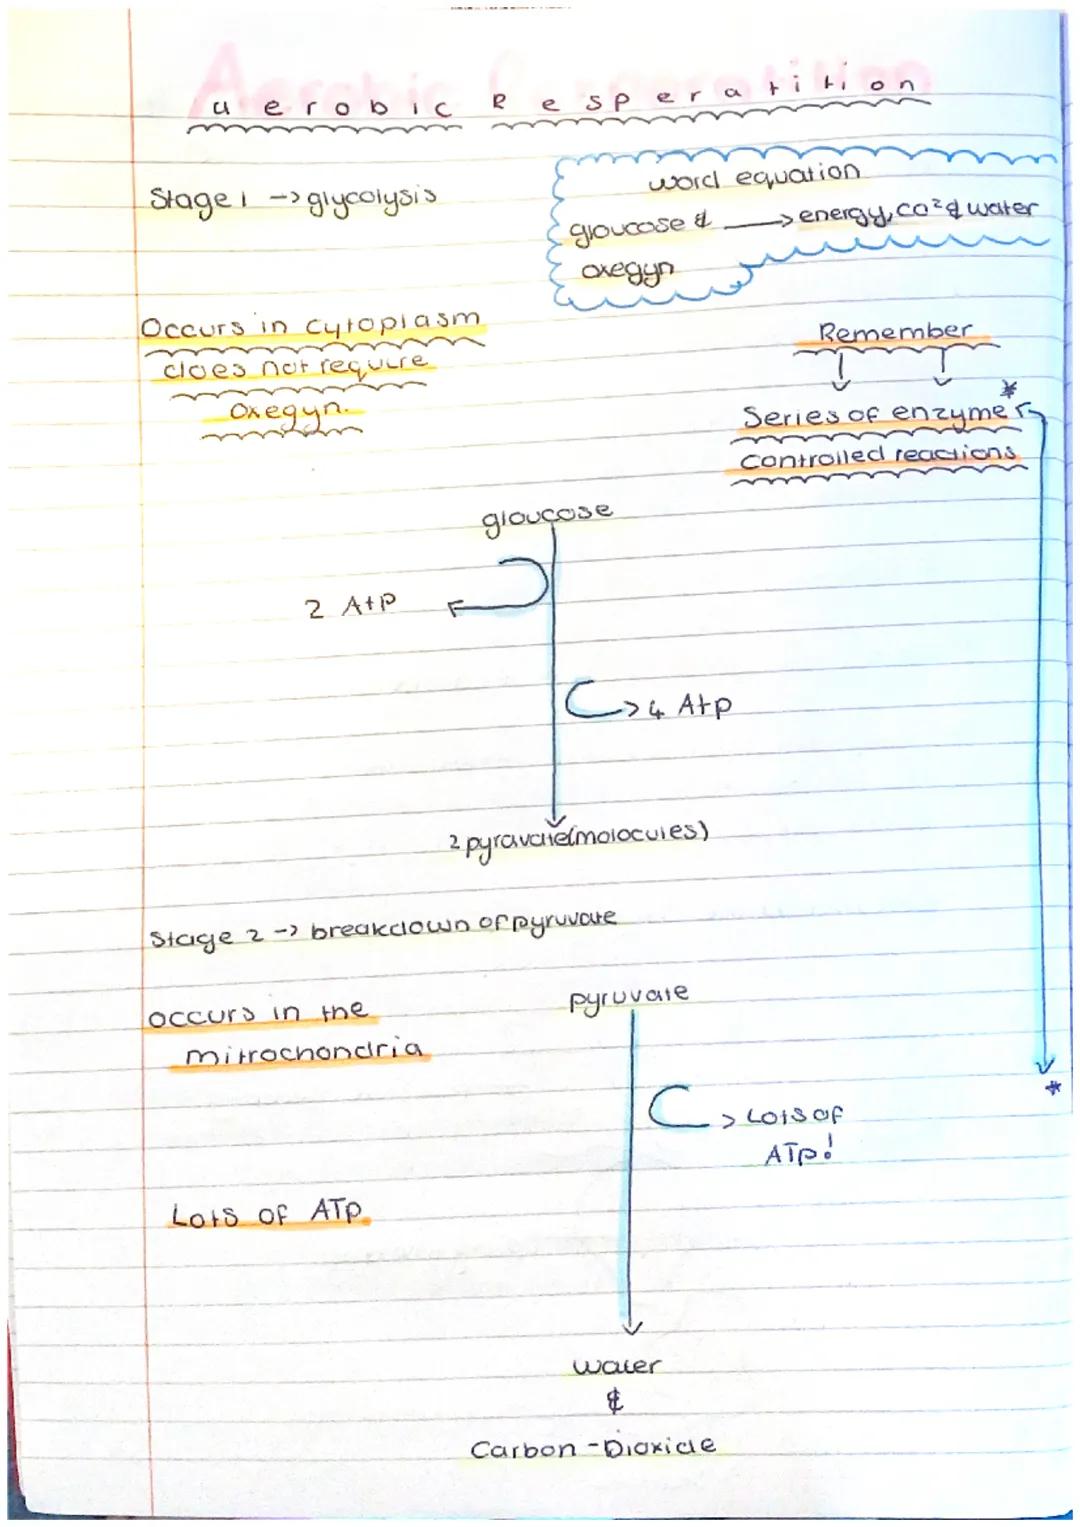 Aerobic Resperatition
aerobic Resperatition
Stage 1 -> glycolysis
word equation
gloucose & -> energy, co² & water
oxegyn
Occurs in cytoplasm
does not require
Oxegyn.
Remember
Series of enzyme *
controlled reactions
gloucose
2 AtP
4 Atp
2 pyravate(molocules)
Stage 2 -> breakdown of pyruvate
occurs in the
mitrochondria
pyruvate
Lots of
ATP!
*
Lots of ATP.
water
&
Carbon-Dioxide